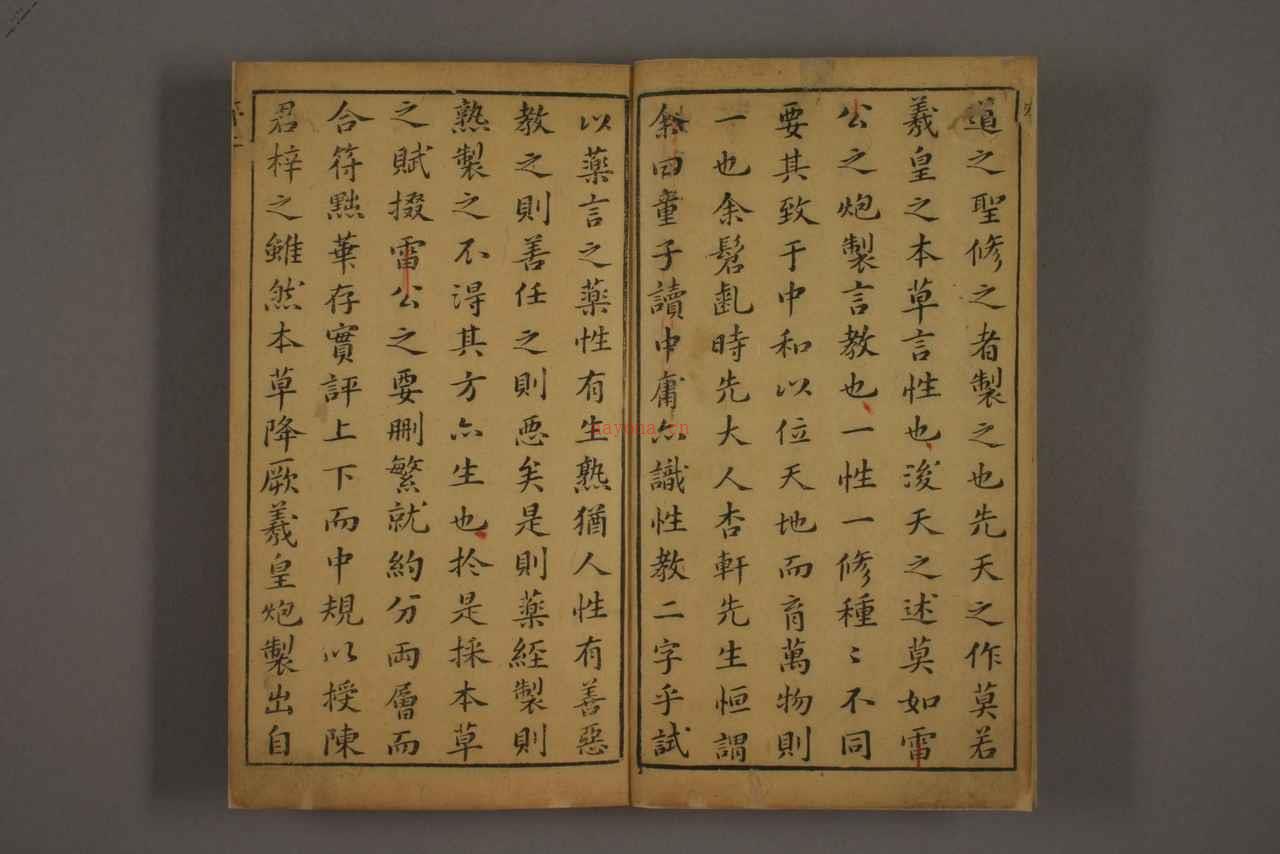 道之聖修之者製之也先天之作莫若
羲皇之本草言性也後天之述莫如雷
公之炮製言教也一性一修種〻不同
要其致于中和以位天地而育萬物則
一也余髫齔時先大人杏軒先生恒謂
余曰童子讀中庸亦識性教二字乎試
以藥言之藥性有生熟猶人性有善惡
教之則善任之則惡矣是則藥經製則
熟製之不淂其方亦生也扵是採本草
之賦掇雷公之要刪繁就約分兩層而
合符黜華存實評上下而中規以授陳
君梓之雖然本草降厥羲皇炮製出自
nayona.cn